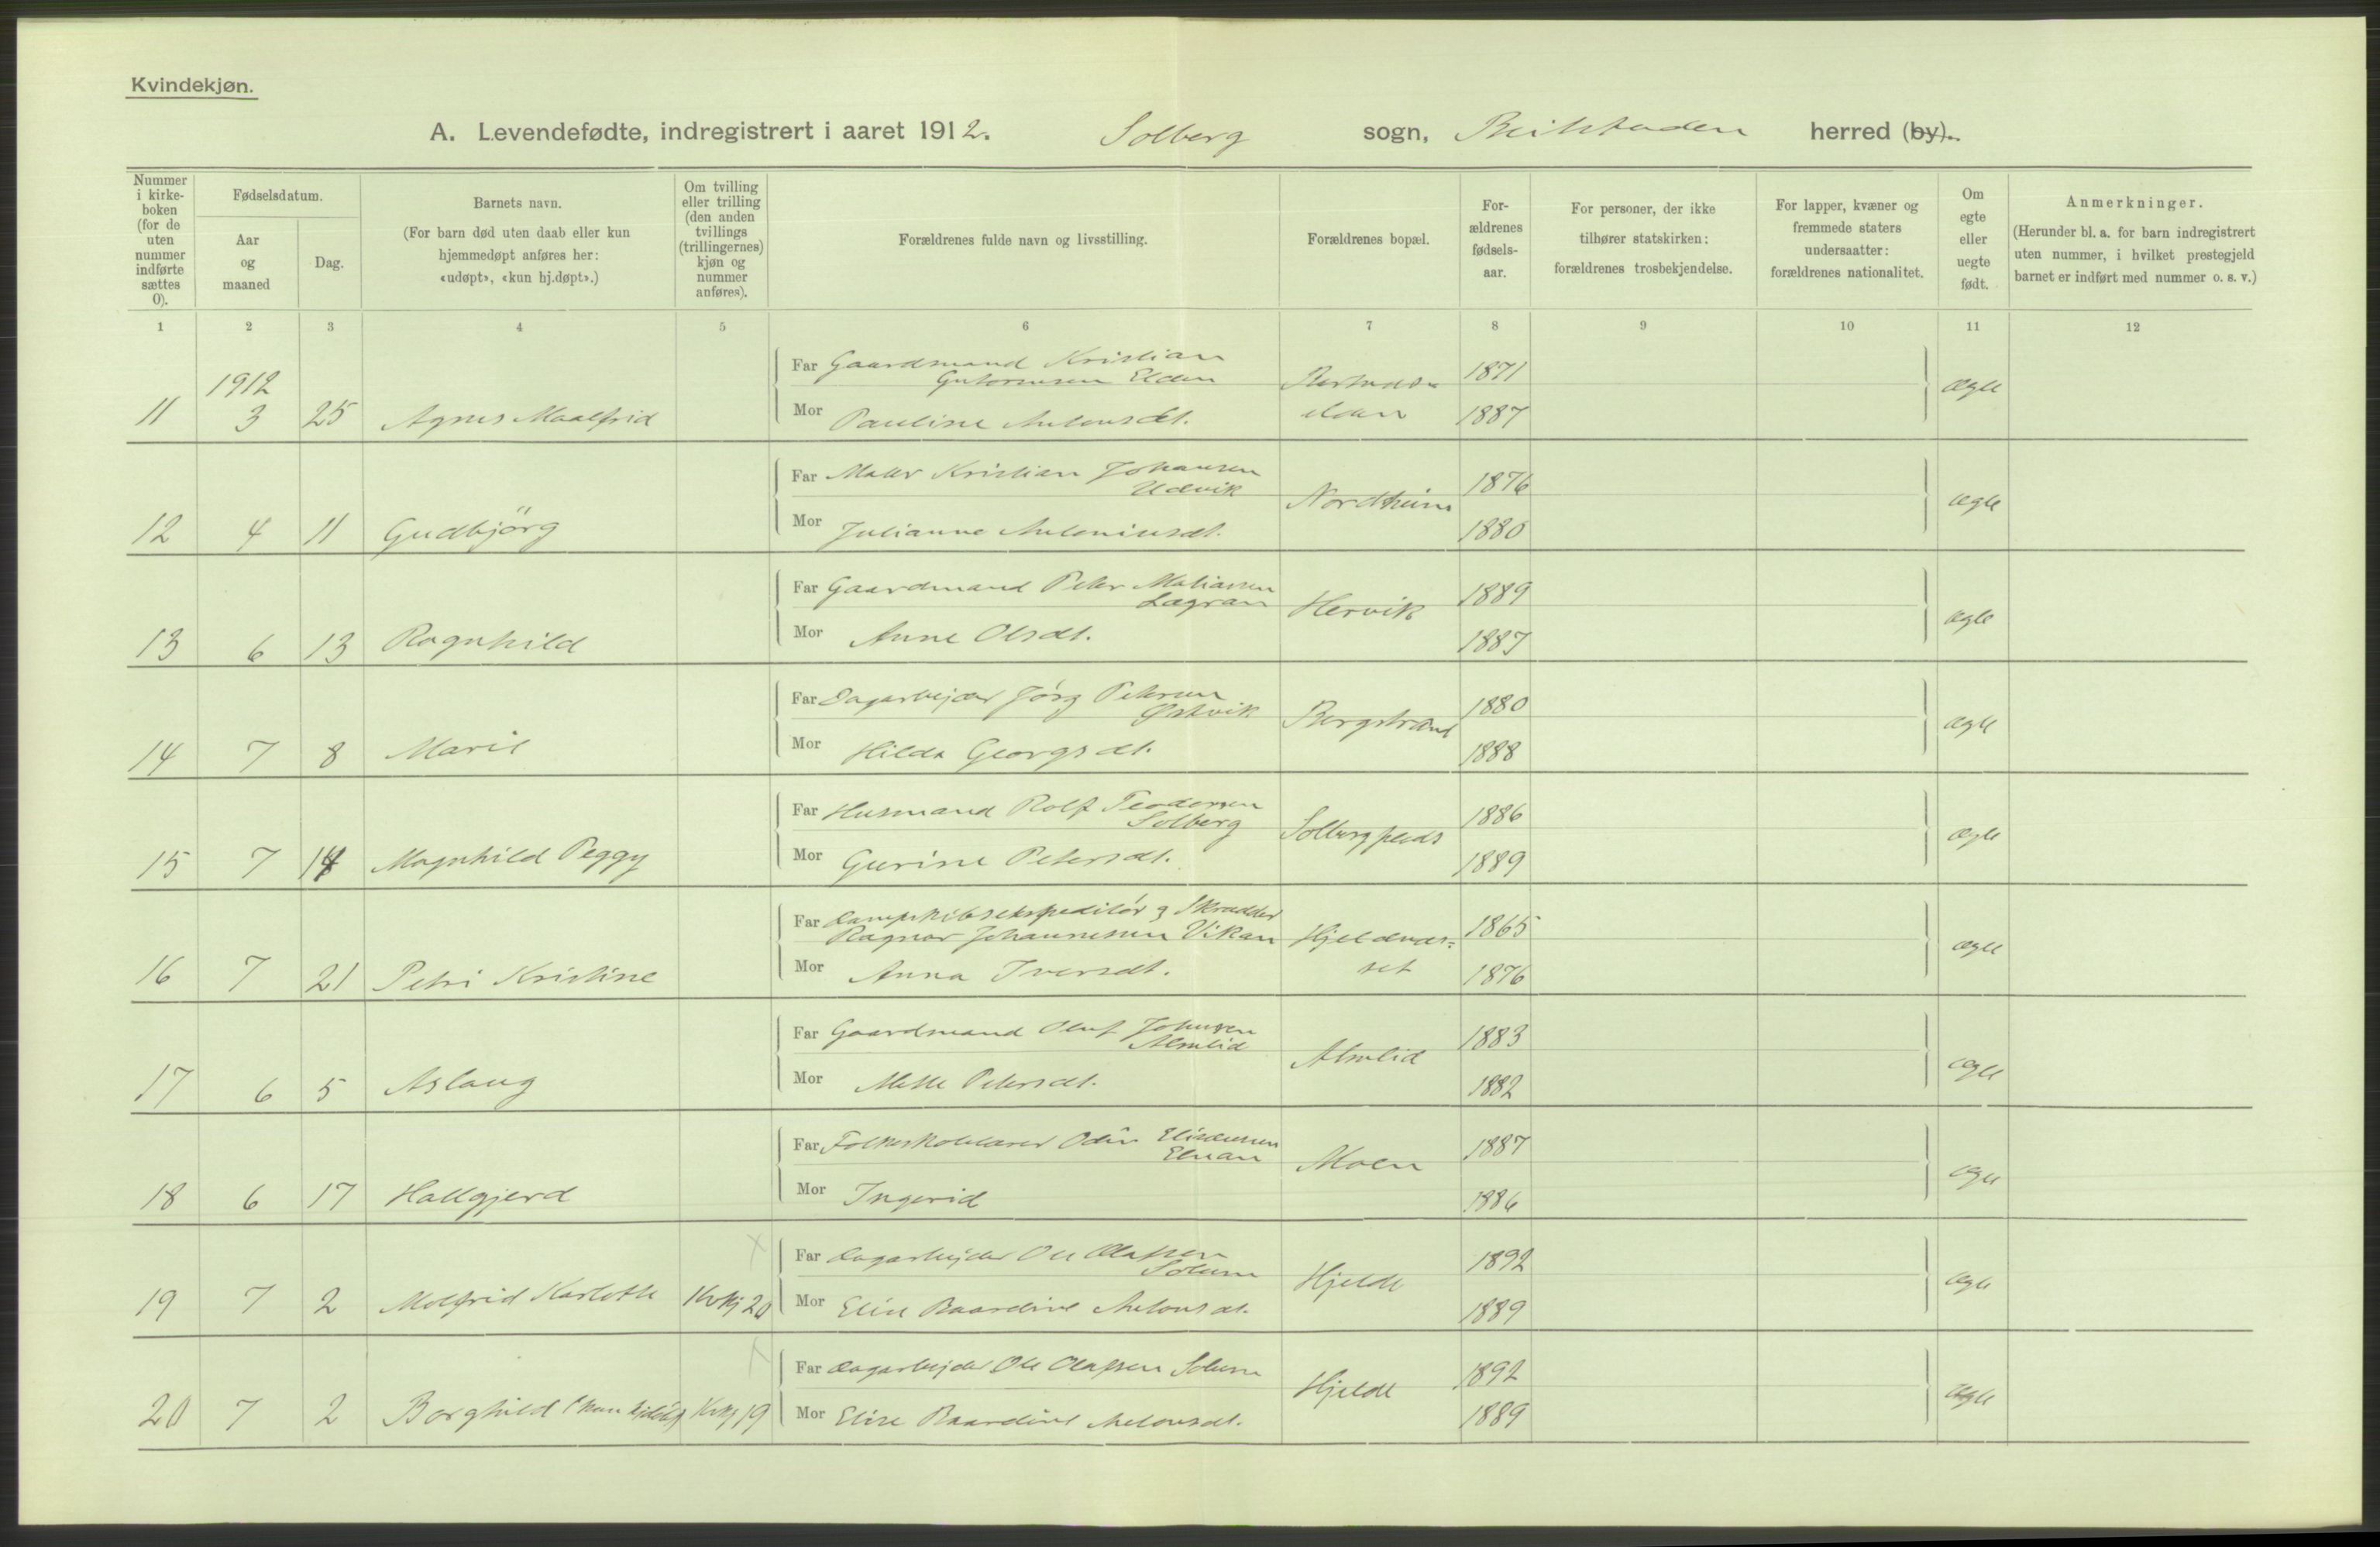 Kvindekjøn.
A. Levendefødte, indregistrert i aaret 1912. Solberg sogn, Beitstaden herred (by).
Nummer i kirke-boken (for de uten nummer indførte sættes 0).
Fødselsdatum.
Aar og maaned
Dag.
Barnets navn.
(For barn død uten daab eller kun hjemmedøpt anføres her: «udøpt», «kun hj.døpt».)
Om tvilling eller trilling (den anden tvillings (trillingernes) kjøn og nummer anføres).
Forældrenes fulde navn og livsstilling.
Forældrenes bopæl.
For-ældrenes fødsels-aar.
For personer, der ikke tilhører statskirken: forældrenes trosbekjendelse.
For lapper, kvæner og fremmede staters undersaatter: forældrenes nationalitet.
Om egte eller uegte født.
Anmerkninger.
(Herunder bl. a. for barn indregistrert uten nummer, i hvilket prestegjeld barnet er indført med nummer o. s. v.)
1 2 3 4 5 6 7 8 9 10 11 12
Far Gaardmand Kristian
Elden 1871
1912
11 3 25 Agnes Maalfrid ægte
Mor Pauline Antonsdt. 1887
Far Kristian Johansen
Udvik Nordheim 1876
12 4 11 Gudbjörg ægte
Mor Julianne Antoniusdt. 1880
Far Gaardmand Peter Matiassen
Lægran Hervik 1889
13 6 13 Ragnhild ægte
Mor Anne Olsdt. 1887
Far Dagarbejder Jørg Petersen
Østvik Bergstrand 1880
14 7 8 Marit ægte
Mor Hilda Georgsdt. 1888
Far Husmand Rolf Teodorsen
Solberg Solbergplads 1886
15 7 14 Magnhild Peggy ægte
Mor Gurine Petersdt. 1889
Far Dampskibsekspeditör og Skrædder
Ragnar Johannessen Vikan Hjeldnes= 1865
16 7 21 Petri Kristine ægte
Mor Anna Iversdt. set 1876
Far Gaardmand Oluf Johnsen
Almlid Almlid 1883
17 6 5 Aslaug ægte
Mor Mette Petersdt. 1882
Far Folkeskolelærer Odin Elisæussen
Elnan Moen 1887
18 6 17 Hallgjerd ægte
Mor Ingerid 1886
Far Dagarbejder Ole Olafsen
Solum Hjelde 1892
19 7 2 Molfrid Karlotte Kvkj 20 ægte
Mor Elise Baardine Antonsdt. 1889
Far Dagarbejder Ole Olafsen Solum Hjelde 1892
20 7 2 Borghild (kun hjdöbt) Kvkj 19 ægte
Mor Elise Baardine Antonsdt. 1889